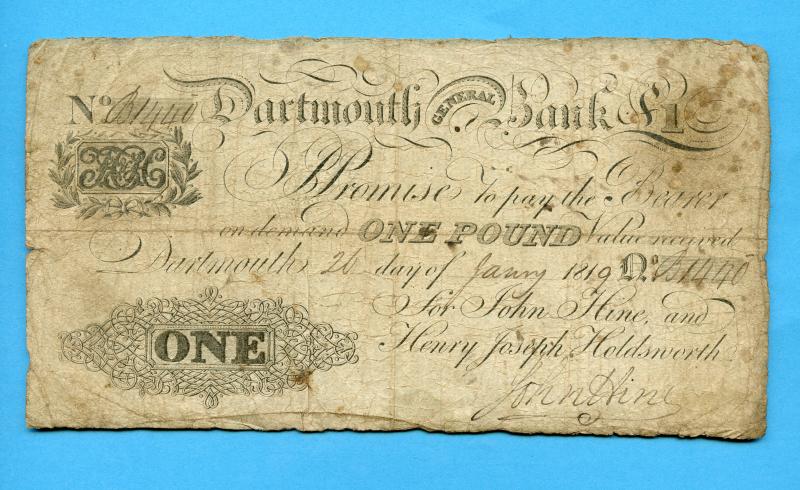 No B1440 Dartmouth GENERAL Bank £1
I Promise to pay the Bearer
on demand ONE POUND Value received
Dartmouth 26 day of Jany 1819 No B1440
For John Hine, and
Henry Joseph Holdsworth
ONE
John Hine